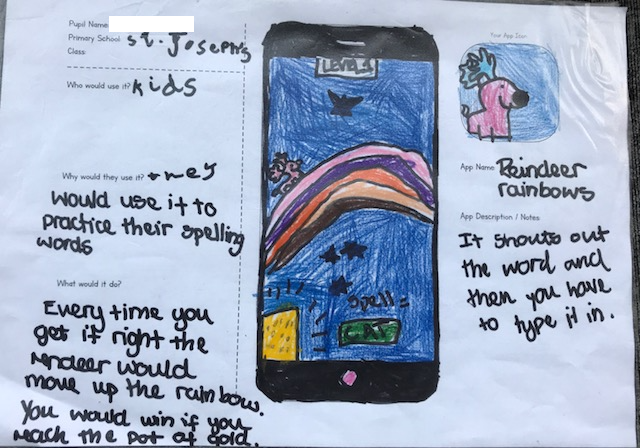 Pupil Name:
Primary School: St. Joseph's
Class:
Who would use it? Kids
Why would they use it? they
would use it to
practice their spelling
words
What would it do?
Every time you
get it right the
reindeer would
move up the rainbow.
You would win if you
reach the pot of gold.
LEVEL 1
Spell =
AT
Your App Icon
App Name Reindeer
rainbows
App Description / Notes
It shouts out
the word and
then you have
to type it in.